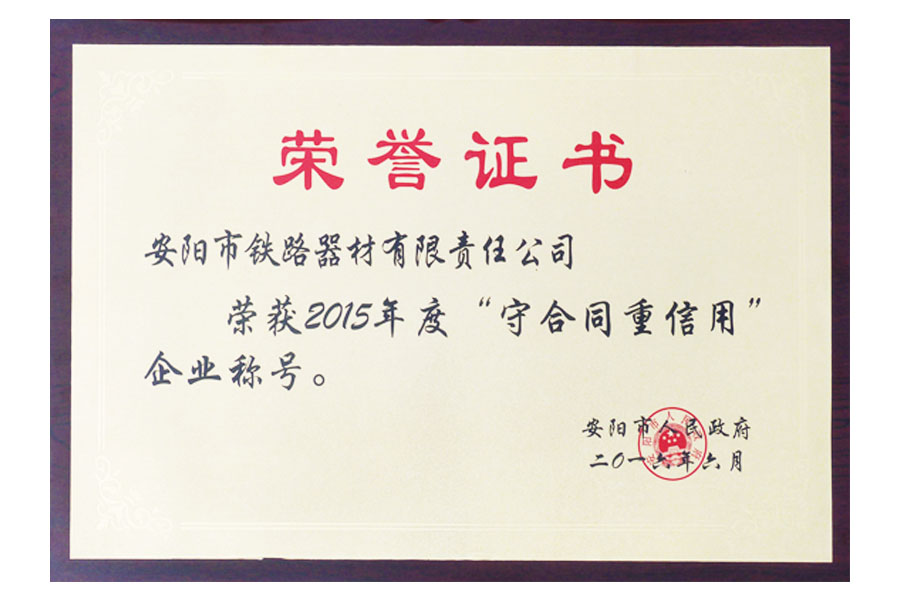 荣誉证书
安阳市铁路器材有限责任公司
荣获2015年度“守合同重信用”
企业称号。
安阳市人民政府
二〇一六年六月